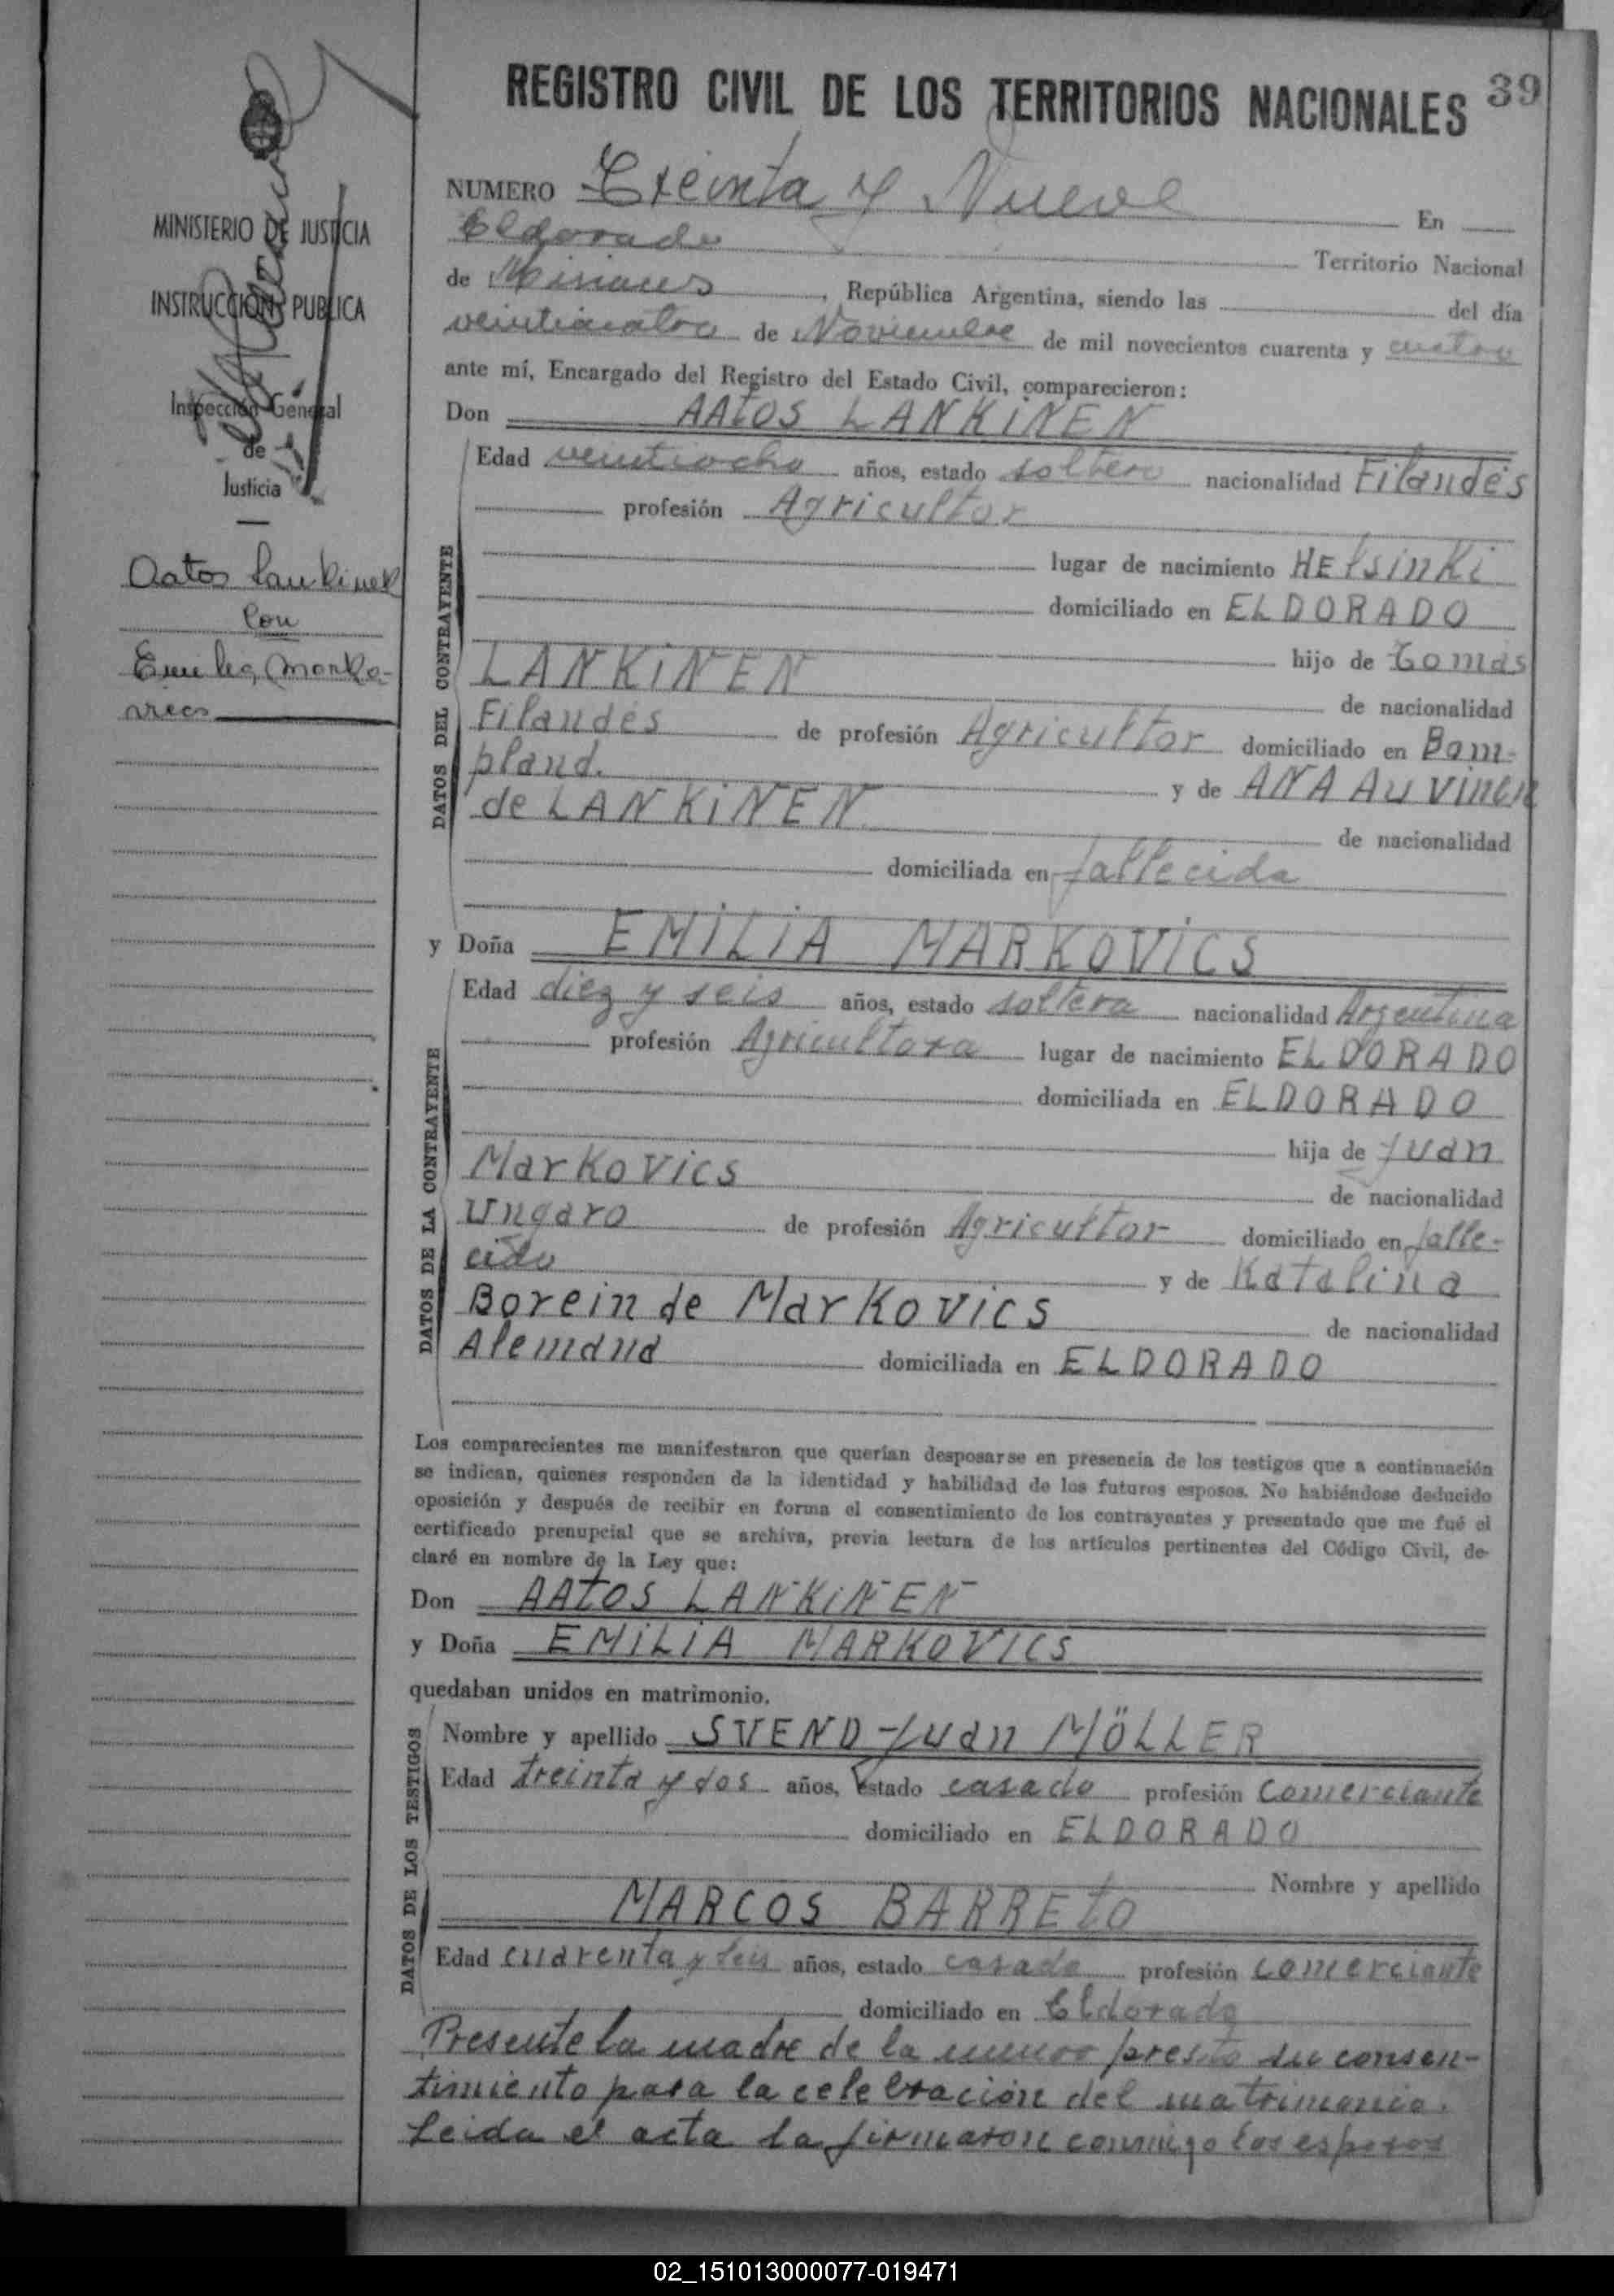 REGISTRO CIVIL DE LOS TERRITORIOS NACIONALES 39
MINISTERIO DE JUSTICIA
INSTRUCCION PUBLICA
Inspección General
de
Justicia
Aatos Lankinen
con
Emilia Marko-
vics
NUMERO Treinta y Nueve En
Eldorado Territorio Nacional
de Misiones, República Argentina, siendo las del día
veinticuatro de Noviembre de mil novecientos cuarenta y cuatro
ante mí, Encargado del Registro del Estado Civil, comparecieron:
Don AAtOS LANKiNEN
DATOS DEL CONTRAYENTE
Edad veintiocho años, estado soltero nacionalidad Filandés
profesión Agricultor
lugar de nacimiento HElsinKi
domiciliado en ELDORADO
hijo de Tomás
LANKiNEN de nacionalidad
Filandés de profesión Agricultor domiciliado en Bom-
pland. y de ANA Auvinen
de LANKiNEN de nacionalidad
domiciliada en fallecida
y Doña EMiLiA MARKOVICS
DATOS DE LA CONTRAYENTE
Edad diez y seis años, estado soltera nacionalidad Argentina
profesión Agricultora lugar de nacimiento ELDORADO
domiciliada en ELDORADO
hija de Juan
Markovics de nacionalidad
Ungaro de profesión Agricultor domiciliado en falle-
cido y de Katalina
Borein de Markovics de nacionalidad
Alemana domiciliada en ELDORADO
Los comparecientes me manifestaron que querían desposarse en presencia de los testigos que a continuación
se indican, quienes responden de la identidad y habilidad de los futuros esposos. No habiéndose deducido
oposición y después de recibir en forma el consentimiento de los contrayentes y presentado que me fué el
certificado prenupcial que se archiva, previa lectura de los artículos pertinentes del Código Civil, de-
claré en nombre de la Ley que:
Don AAtOS LANKiNEN
y Doña EMiLiA MARKOVICS
quedaban unidos en matrimonio.
DATOS DE LOS TESTIGOS
Nombre y apellido SVEND-Juan MÖLLER
Edad treinta y dos años, estado casado profesión Comerciante
domiciliado en ELDORADO
Nombre y apellido
MARCOS BARREtO
Edad cuarenta y seis años, estado casado profesión comerciante
domiciliado en Eldorado
Presente la madre de la menor prestó su consen-
timiento para la celebración del matrimonio.
Leida el acta la firmaron conmigo los esposos
02_151013000077-019471